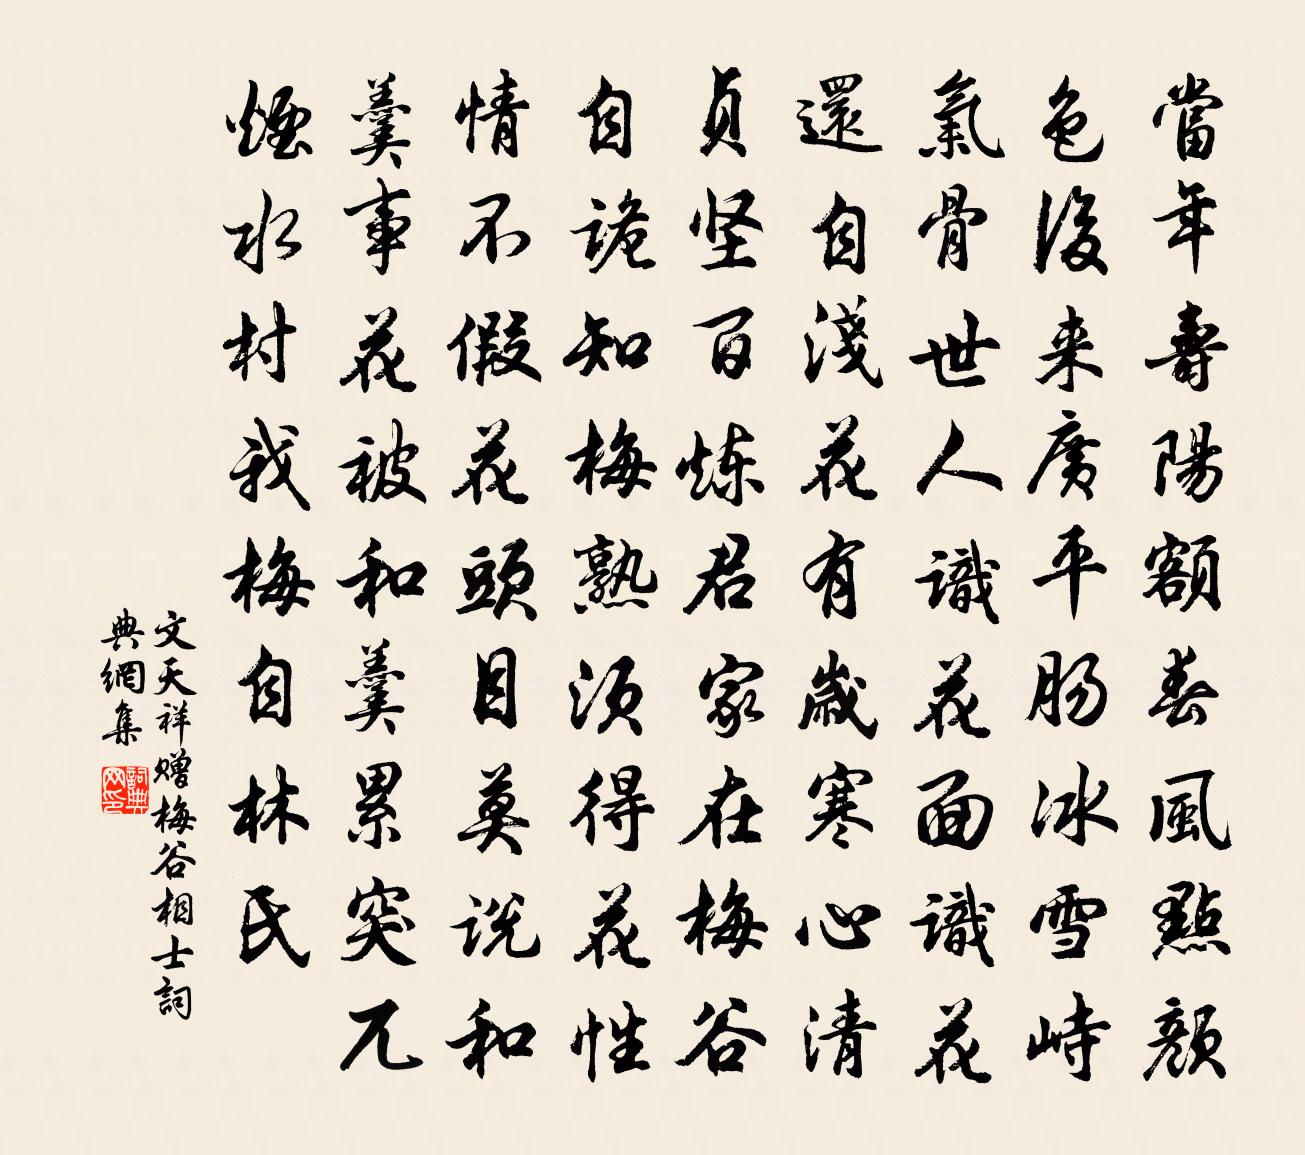 當年壽陽額春風點顔
色後来廣平腸冰雪峙
氣骨世人識花面識花
還自淺花有歳寒心清
貞坚百炼君家在梅谷
自詭知梅熟須得花性
情不假花頭目莫说和
羹事花被和羹累突兀
煙水村我梅自林氏
文天祥赠梅谷相士詞
典網集
詞典
网印